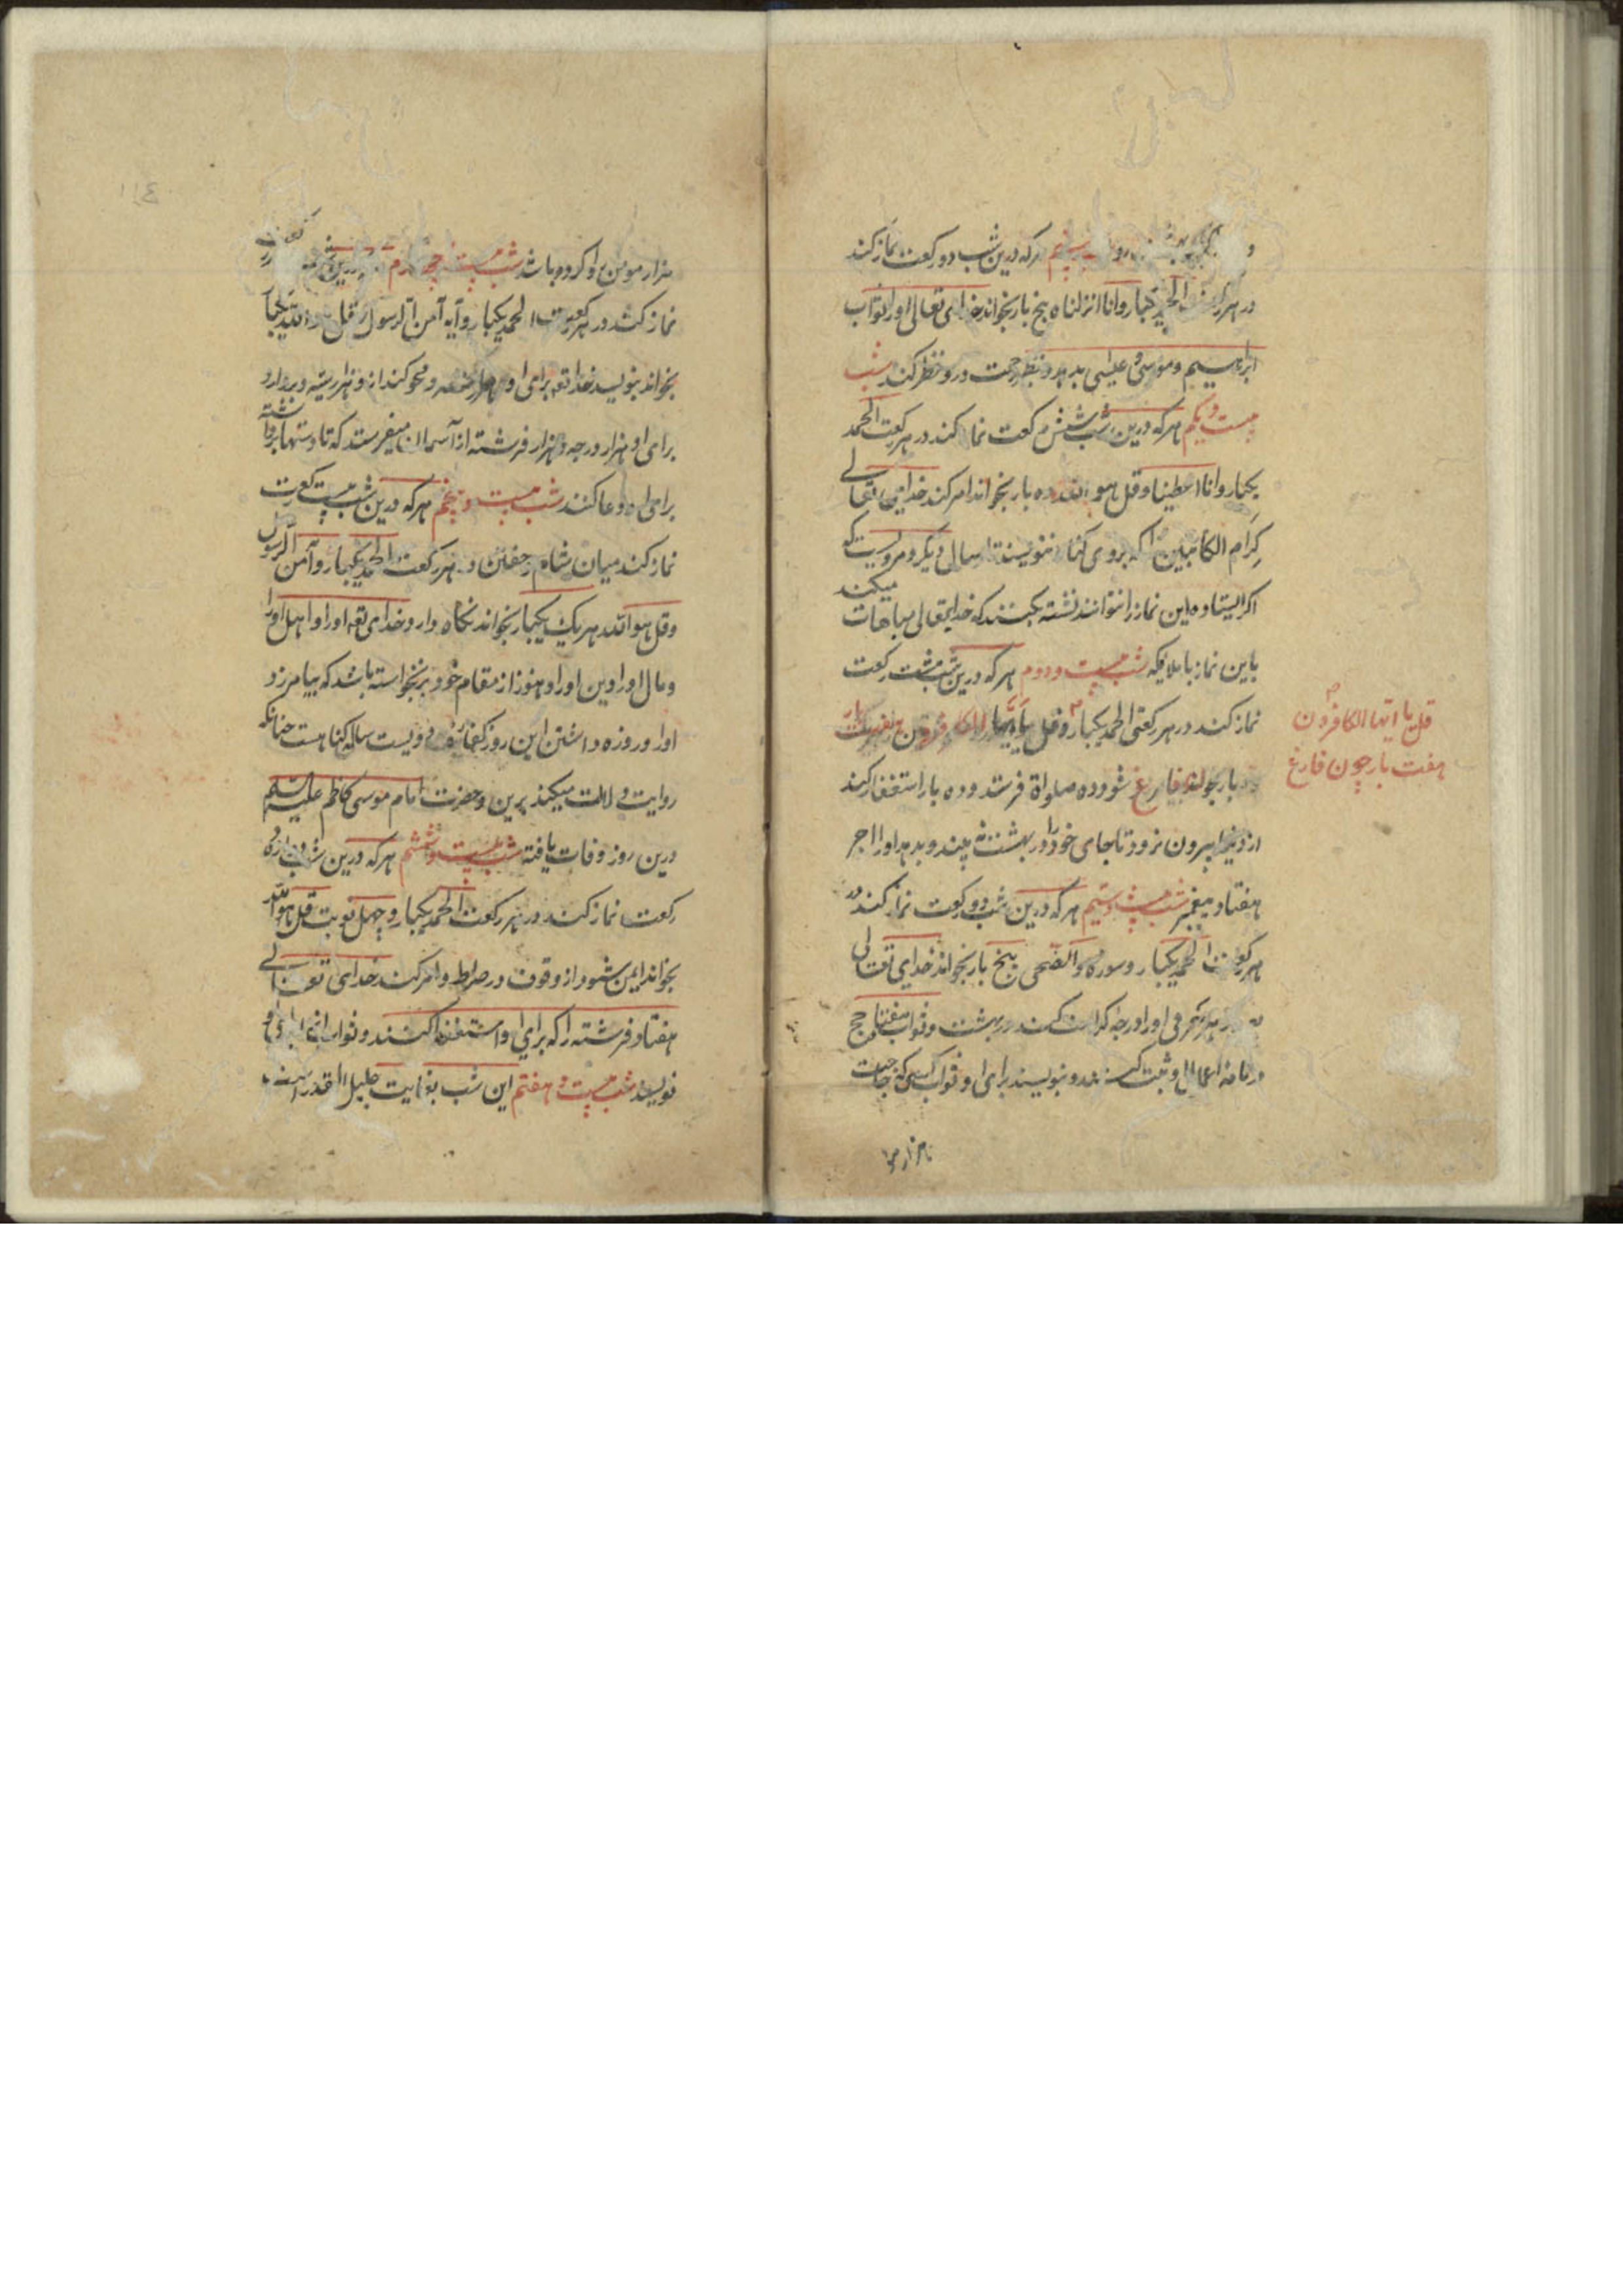 هرکه درین شب دو رکعت نماز کند
در هر رکعت الحمد یکبار و انا انزلناه پنج بار بخواند خدای تعالی او را ثواب
ابراهیم و موسی و عیسی بدهد و بنظر رحمت درو نظر کند شب
بیست و یکم هرکه درین شب شش رکعت نماز کند در هر رکعت الحمد
یکبار و انا اعطینا و قل هو الله ده بار بخواند امر کند خدای تعالی
کرام الکاتبین را که بروی کناه ننویسند تا سال دیگر و مرویست که
اکر ایستاده این نماز را نتوانند نشسته بکنند که خدایتعالی مباهات میکند
باین نماز با ملایکه شب بیست و دوم هرکه درین شب هشت رکعت
نماز کند در هر رکعتی الحمد یکبار و قل یا ایها الکافرون هفت بار
قل یا ایها الکافرون
هفت بار چون فارغ
بار چون فارغ شود ده صلواة فرستد و ده بار استغفار کند
از دنیا بیرون نرود تا جای خود را در بهشت نه بیند و بدهد او را اجر
هفتاد پیغمبر شب بیست و سیم هرکه درین شب دو رکعت نماز کند در
هر رکعت الحمد یکبار و سوره والضحی پنج بار بخواند خدای تعالی
بهر حرفی او را درجه کرامت کند در بهشت و ثواب هفتاد حج
در نامه اعمال او ثبت کنند و بنویسند برای او ثواب کسی که حاجت
هزار مو
هزار مومن روا کرده باشد شب بیست و چهارم
نماز کند در هر رکعت الحمد یکبار و آیه آمن الرسول و قل هو الله یکبار
بخواند بنویسد خدا تع برای او هزار حسنه و محو کند از و هزار سیئه و بردارد
برای او هزار درجه و هزار فرشته از آسمان میفرستد که تا دستها برداشته
برای او دعا کنند شب بیست و پنجم هرکه درین شب بیست رکعت
نماز کند میان شام و خفتن در هر رکعت الحمد یکبار و آمن الرسول
و قل هو الله هر یک یکبار بخواند نکاه دارد خدای تع او را و اهل او را
و مال او را و دین او را و هنوز از مقام خود برنخواسته باشد که بیامرزد
او را و روزه داشتن این روز کفاره دویست ساله کناهست چنانکه
روایت دلالت میکند برین و حضرت امام موسی کاظم علیه السلم
درین روز وفات یافته شب بیست و ششم هرکه درین شب دوازده
رکعت نماز کند در هر رکعت الحمد یکبار و چهل نوبت قل هو الله
بخواند ایمن شود از وقوف در صراط و امر کند خدای تعالی
هفتاد فرشته را که برای او استغفار کنند و ثواب انها برای او
نویسند شب بیست و هفتم این شب بغایت جلیل القدر است